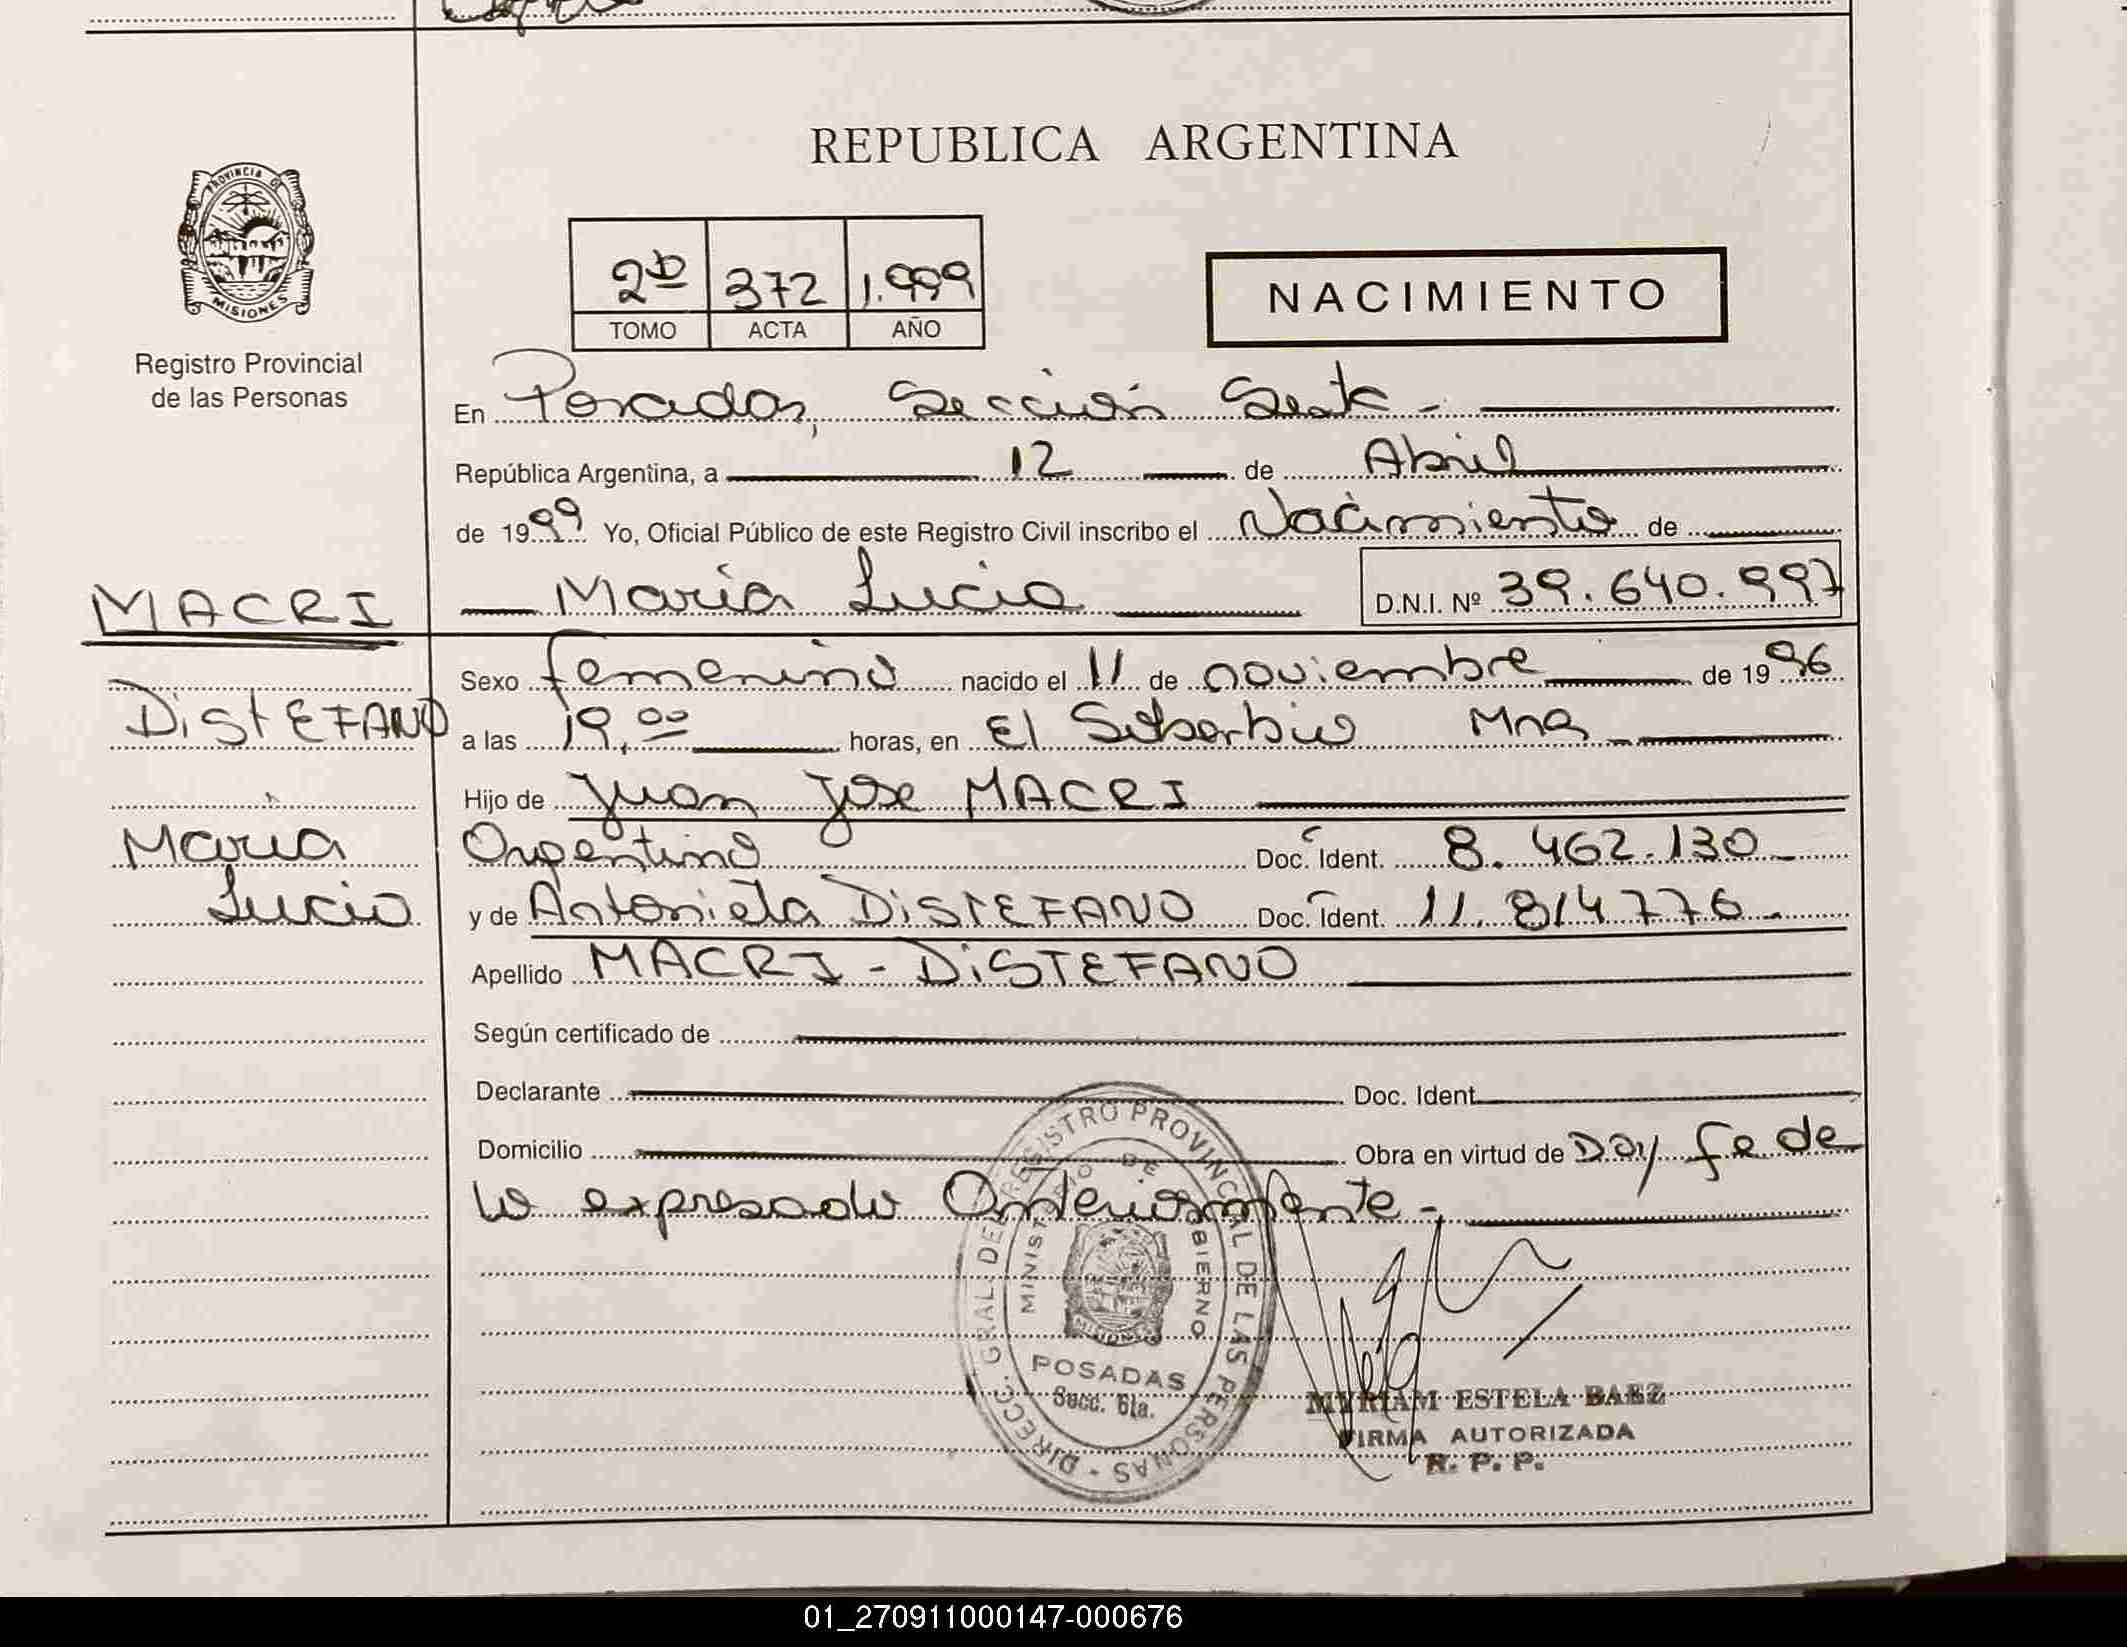 REPUBLICA ARGENTINA
PROVINCIA DE
MISIONES
Registro Provincial
de las Personas
2D 372 1.999
TOMO ACTA AÑO
NACIMIENTO
En Posadas, Sección Sexta -
República Argentina, a 12 de Abril
de 1999 Yo, Oficial Público de este Registro Civil inscribo el Nacimiento de
María Lucia D.N.I. Nº 39.640.997
MACRI
DiSTEFANO
Maria
Lucia
Sexo femenino nacido el 11 de noviembre de 1996
a las 19,00 horas, en El Soberbio Mnes
Hijo de Juan Jose MACRI
Argentino Doc. Ident. 8.462.130
y de Antonieta DiSTEFANO Doc. Ident. 11.814.776
Apellido MACRI - DiSTEFANO
Según certificado de
Declarante Doc. Ident
Domicilio Obra en virtud de Doy fe de
lo expresado Anteriormente -
DIRECC. GRAL. DEL REGISTRO PROVINCIAL DE LAS PERSONAS -
MINISTERIO DE GOBIERNO
MISIONES
POSADAS
Secc. 6ta.
MYRIAM ESTELA BAEZ
FIRMA AUTORIZADA
R. P. P.
01_270911000147-000676